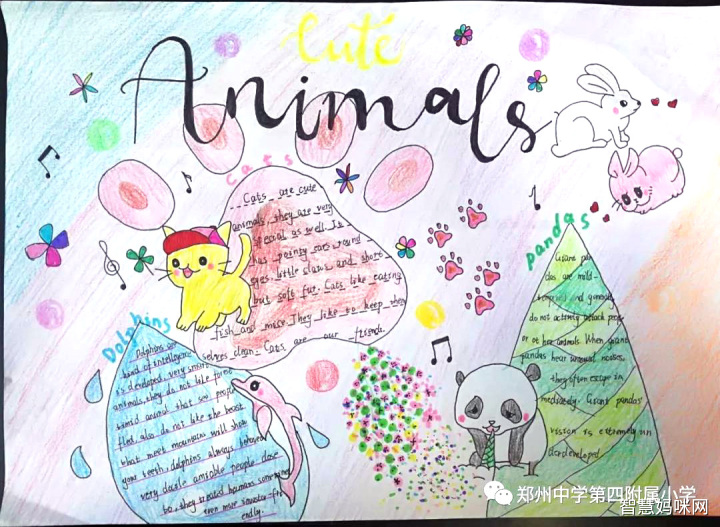 Cute
Animals
Cats
Cats are cute
animals, they are very
special as well. It
has pointy ears round
eyes, little claws and short
but soft fur. Cats like eating
fish and mice. They like to keep they
selves clean. Cats are our friends.
Dolphins
Dolphins are
kind of intelligence
is developed, very smart
animals, they do not like fierce
timid animal that saw people
fled, also do not like the beast
that meet mountains will show
your teeth, dolphins always behaved
very docile amiable people close
to, they treated humans some
even more
endly.
pandas
Giant pan
das are mild-
tempered and generally
do not actively attack people
or other animals. When giant
pandas hear unusual noises,
they often escape im
mediately. Giant pandas'
vision is extremely un
der developed.
郑州中学第四附属小学
智慧妈咪网